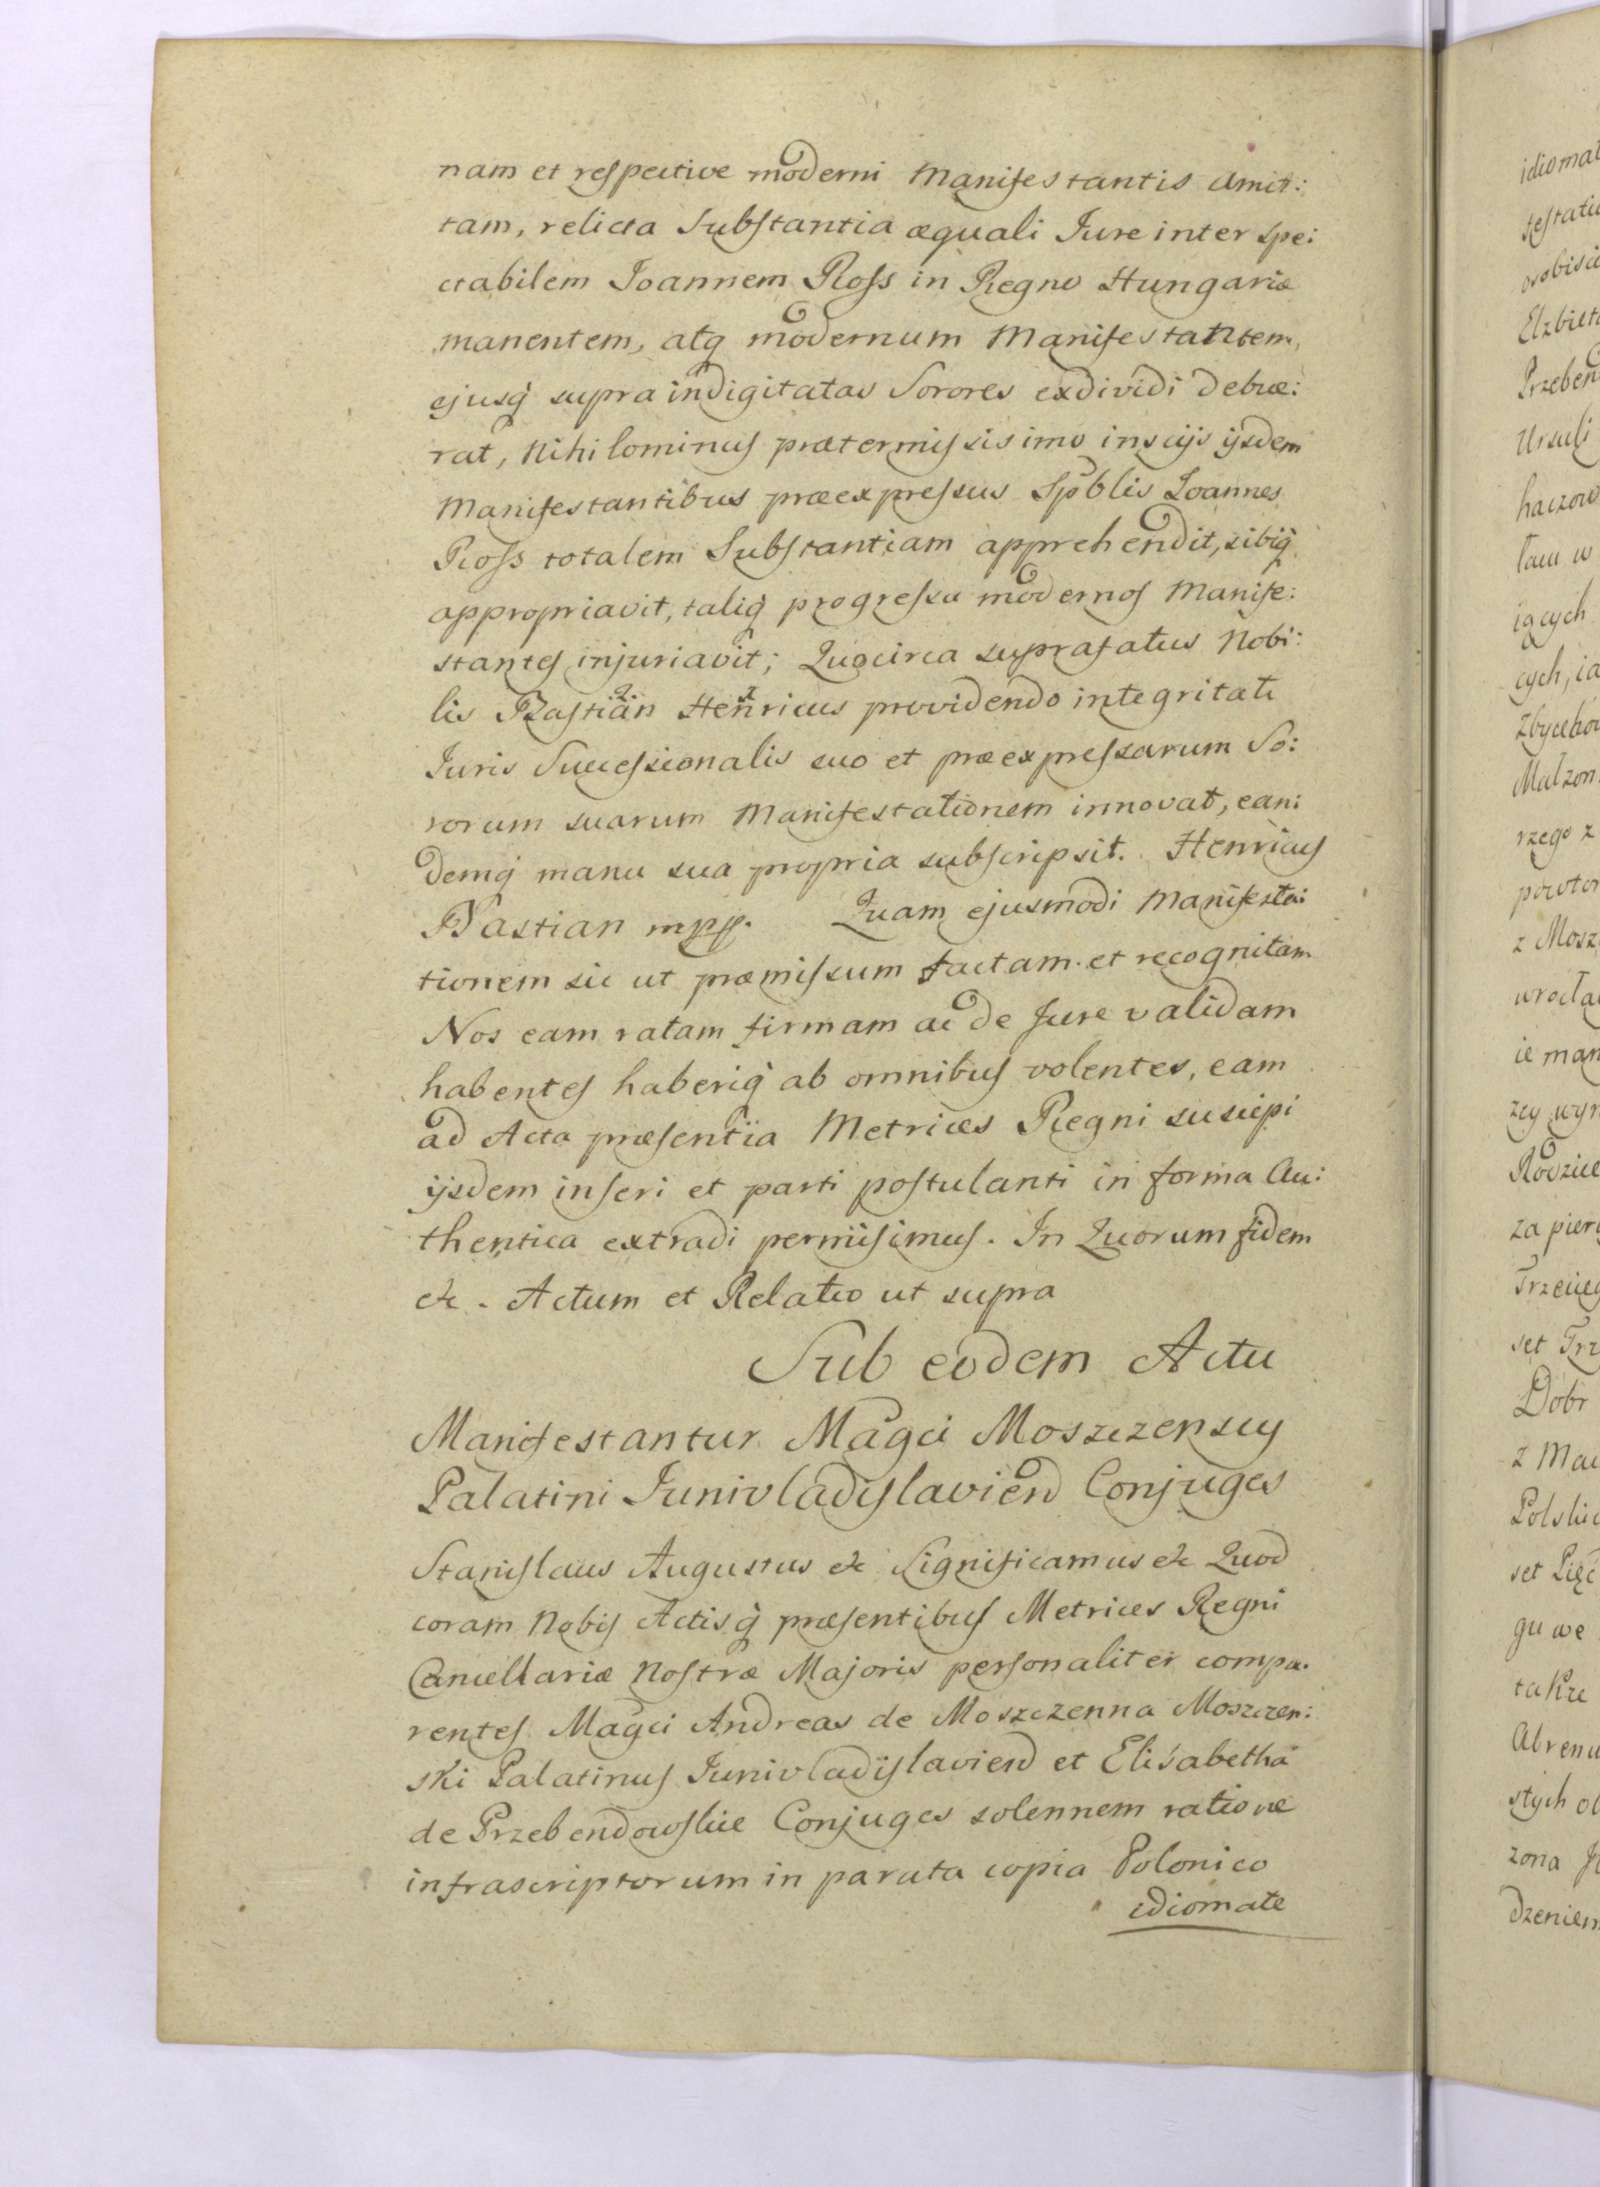 nam et respective moderni Manifestantis Amit:
tam, relicta Substantia æquali Jure inter Spe:
ctabilem Joannem Ross in Regno Hungariæ
manentem, atq modernum Manifestantem,
ejusq supra indigitatas Sorores exdividi debue:
rat, Nihilominus prætermississimo insciis ijsdem
Manifestantibus præexpressus Spblis Joannes
Ross totalem Substantiam apprehendit, sibiq
appropriavit, taliq progressu modernos Manife:
stantes injuriavit; Quocirca suprafatus Nobi:
lis Bastian Henricus providendo integritati
Juris Successionalis suo et præexpressarum So:
rorum suarum Manifestationem innovat, ean:
demq manu sua propria subscripsit. Henricus
Bastian mpp. Quam ejusmodi Manifesta:
tionem sic ut præmissum factam et recognitam
Nos eam ratam firmam ac de Jure validam
habentes haberiq ab omnibus volentes, eam
ad Acta præsentia Metrices Regni suscipi
ijsdem inseri et parti postulanti in forma Au:
thentica extradi permisimus. In Quorum fidem
&c. Actum et Relatio ut supra
Sub eodem Actu
Manifestantur Magci Moszczenscy
Palatini Junivladislavien Conjuges
Stanislaus Augustus &c Significamus &c Quod
coram Nobis Actisq præsentibus Metrices Regni
Cancellariæ Nostræ Majoris personaliter compa.
rentes Magci Andreas de Moszczenna Moszczen:
ski Palatinus Junivladislavien et Elisabetha
de Przebendowskie Conjuges solennem ratione
infrascriptorum in parata copia Polonico
idiomate
Elzbieta
Ursuli
haczow
iących
cych, ia
rzego z
z Mosz
wrocła
ie man
zey wyr
Rodzice
Trzecieg
set Trz
Dobr
z Mac
Polskic
set Pięć
gu we
także
stych ob
zona
dzeniem